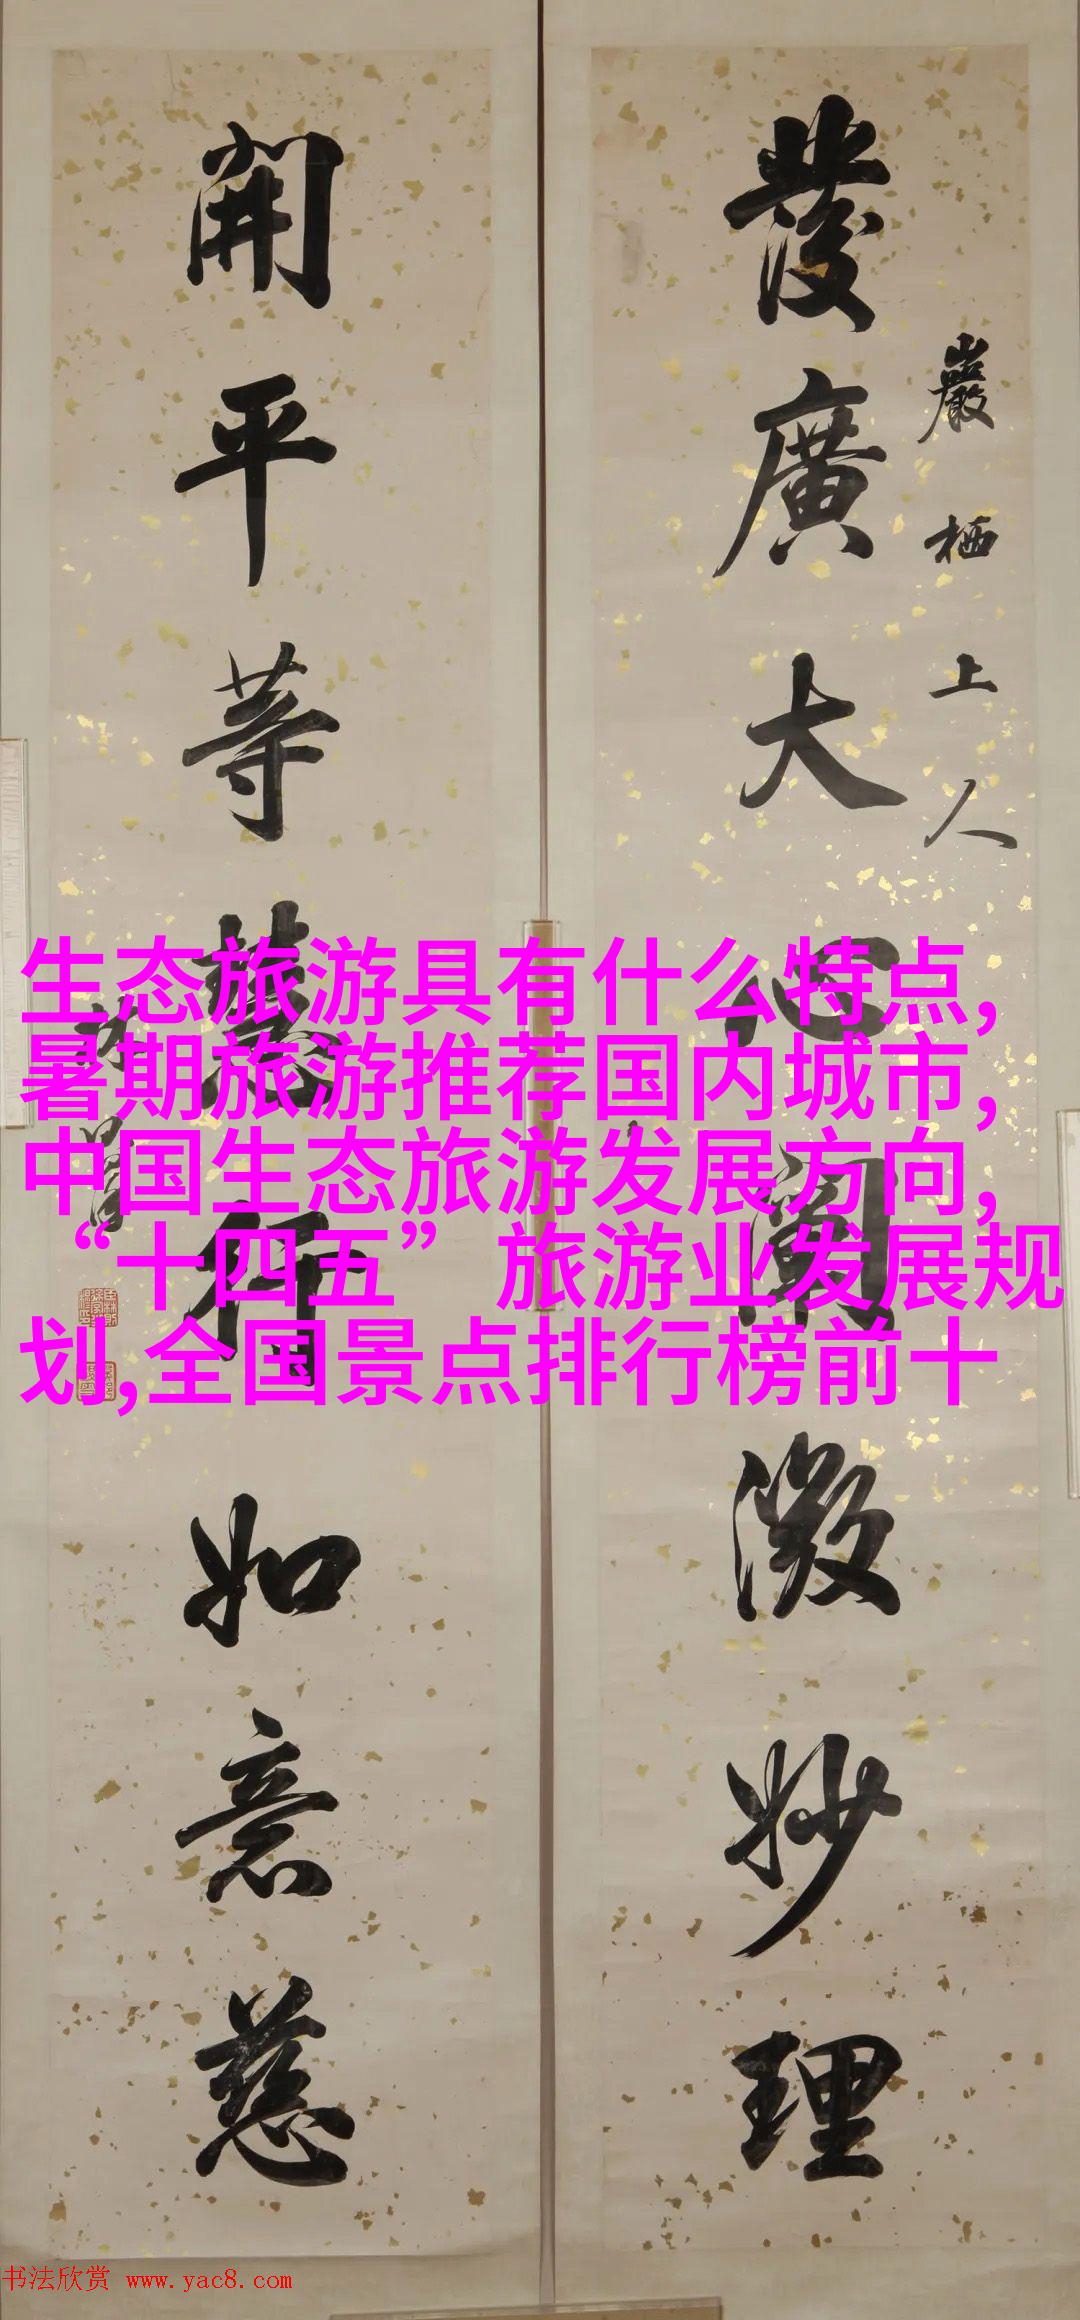 發廣大心闡微妙理
巖栖上人
開平等慧行如意慈
生态旅游具有什么特点,
暑期旅游推荐国内城市,
中国生态旅游发展方向,
“十四五” 旅游业发展规
划,全国景点排行榜前十
书法欣赏 www.yac8.com